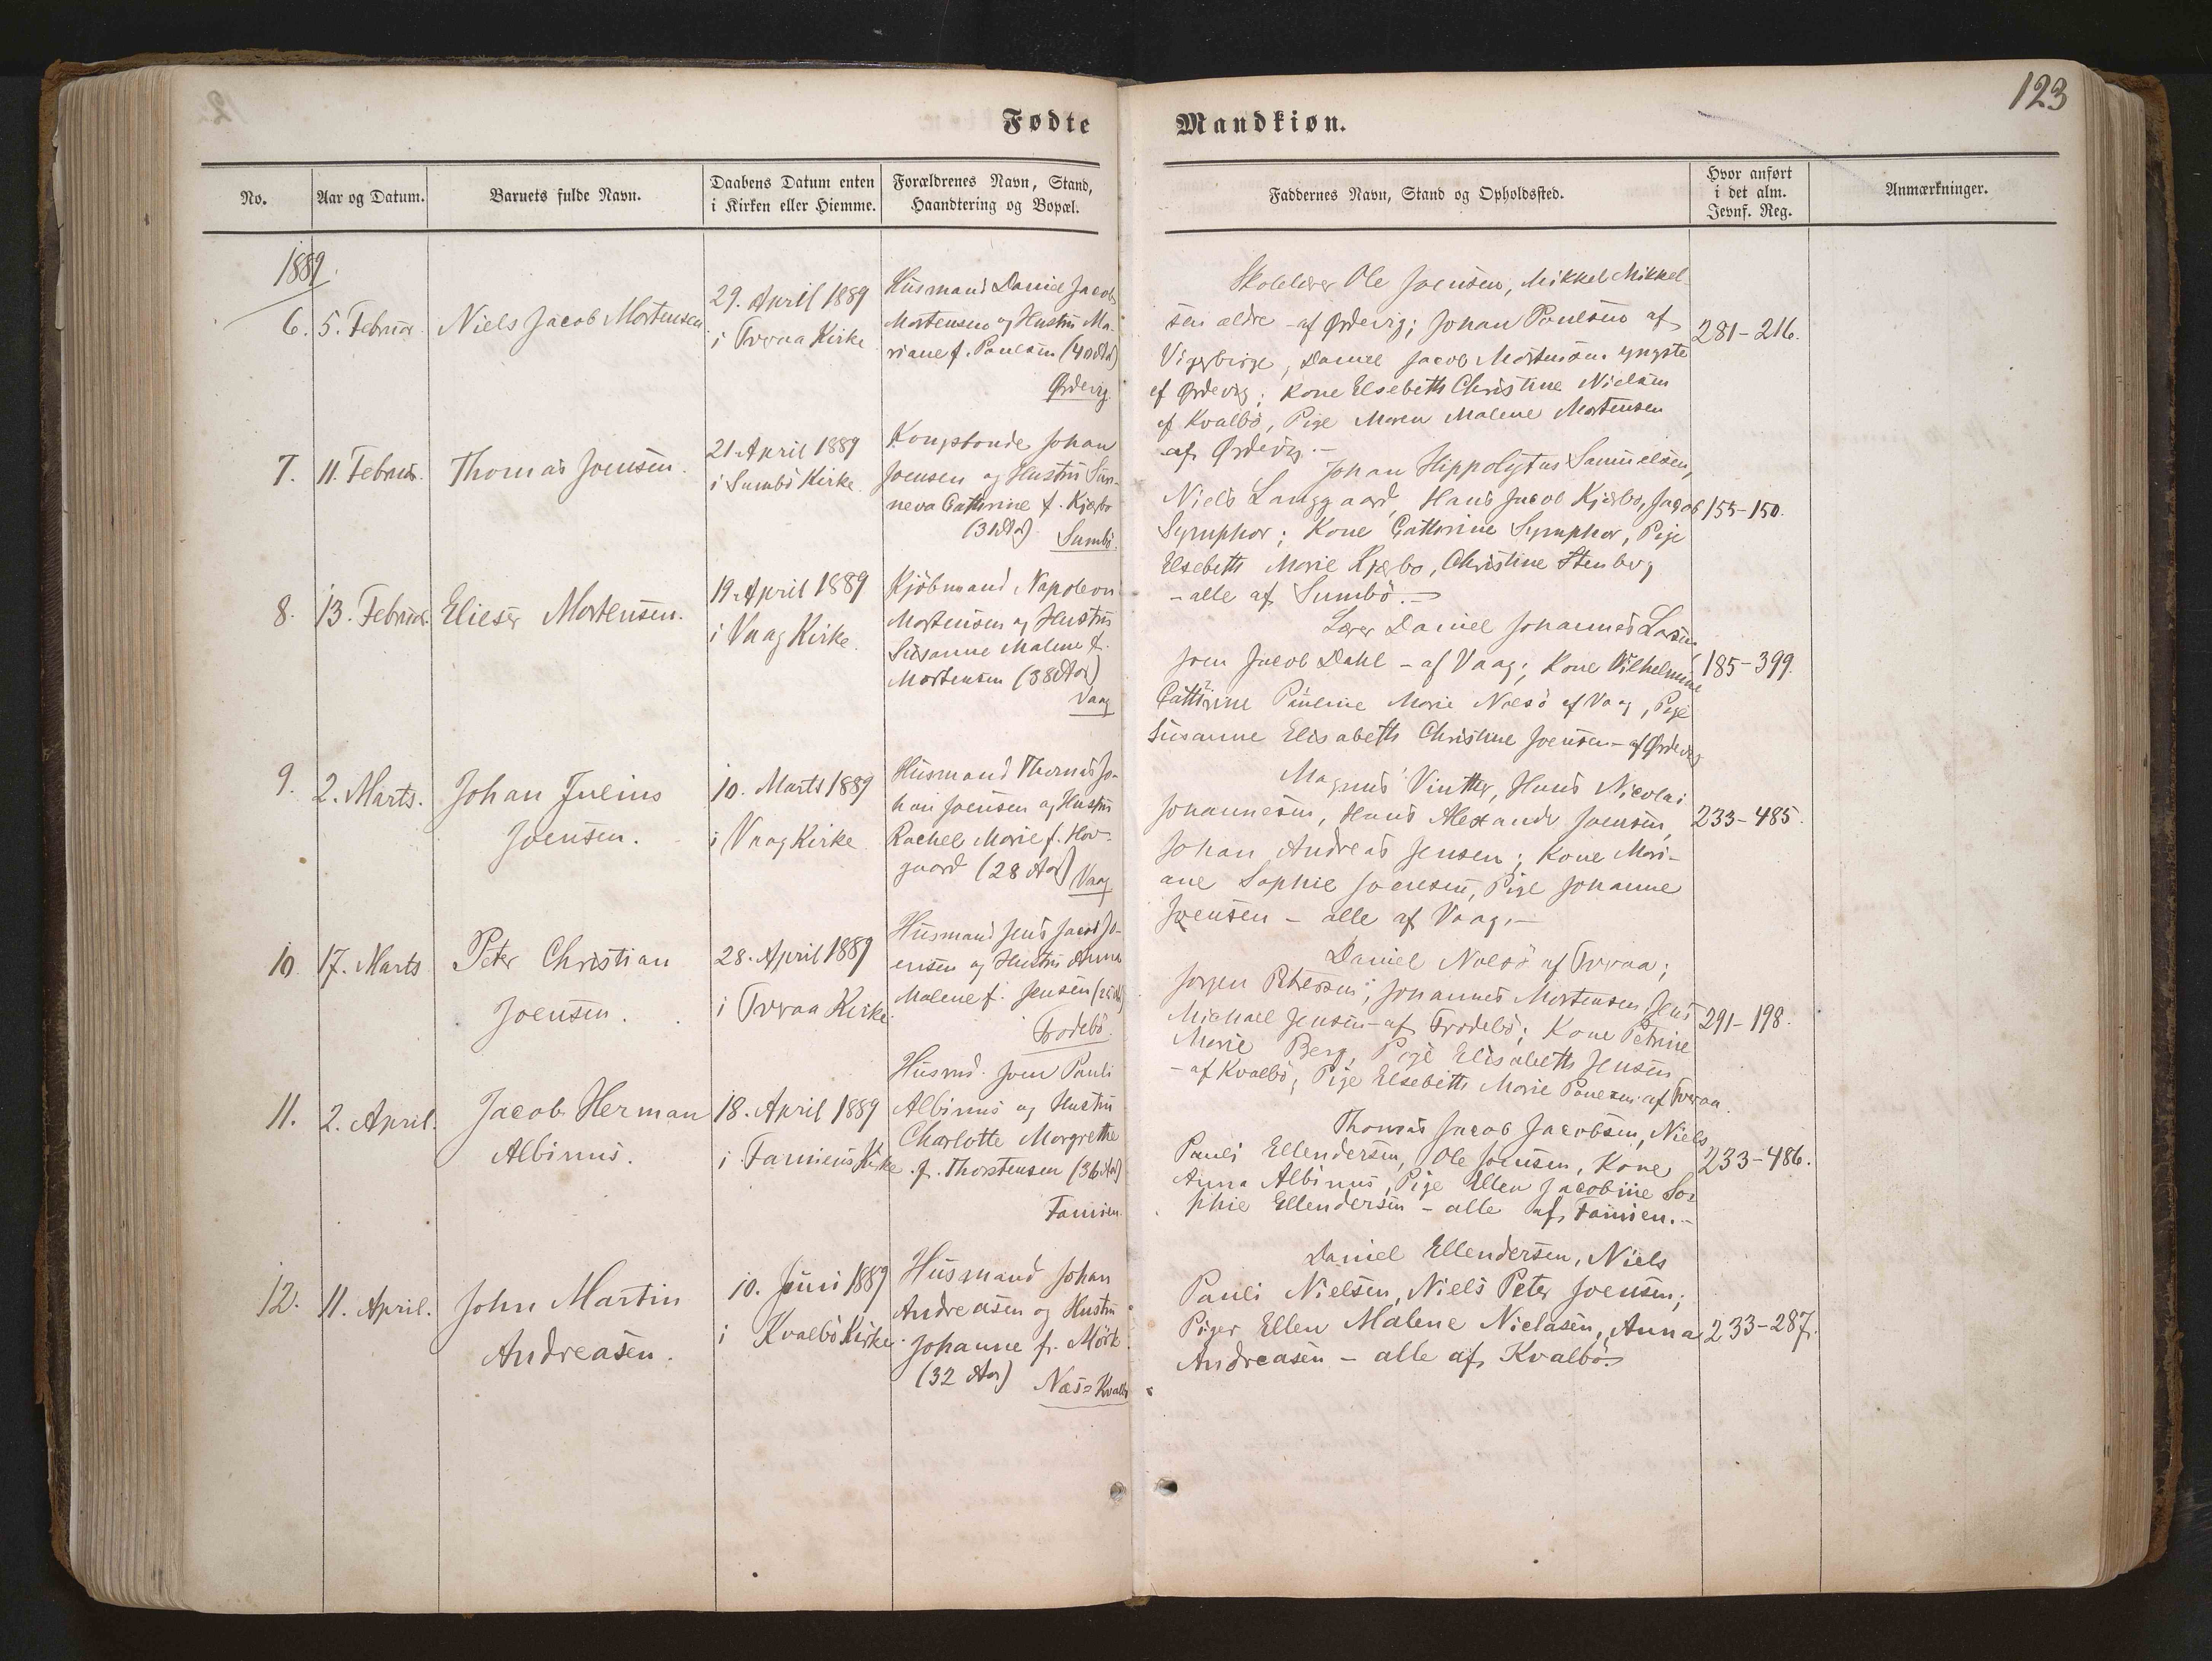 123
Fødte
Mandkiøn.
No.
Aar og Datum.
Barnets fulde Navn.
Daabens Datum enten
i Kirken eller Hiemme.
Forældrenes Navn, Stand,
Haandtering og Bopæl.
Faddernes Navn, Stand og Opholdssted.
Hvor anført
i det alm.
Jevnf. Reg.
Anmærkninger.
1889
6.
5. Februar.
Niels Jacob Mortensen
29. April 1889
i Tvraa Kirke
Husmand Daniel Jacob
Mortensen og Hustru Ma-
riane f. Poulsen (40 Aar)
Ørdevig
Skolelærer Ole Joensen, Mikkel Mikkel-
sen ældre - af Ørdevig; Johan Poulsen af
Vigerbirge, Daniel Jacob Mortensen yngste
af Ørdevig; Kone Elsebeth Christine Nielsen
af Kvalbö, Pige Maren Malene Mortensen
af Ørdevig.-
281-216.
7.
11. Februar.
Thomas Joensen.
21. April 1889
i Sumbö Kirke
Johan
Joensen og Hustru Sun-
neva Cathrine f. Kjærbo
(31 Aar) Sumbö.
Johan Hippolytus Samuelsen,
Niels Langgaard, Hans Jacob Kjærbo, Jacob
Symphor; Kone Cathrine Symphor, Pige
Elsebeth Marie Kjærbo, Christine Stenberg
- alle af Sumbö.-
155-150.
8.
13. Februar.
Elieser Mortensen.
19. April 1889
i Vaag Kirke.
Kjöbmand Napoleon
Mortensen og Hustru
Susanne Malene f.
Mortensen (38 Aar)
Vaag
Lærer Daniel Johannes Larsen,
Joen Jacob Dahl - af Vaag; Kone Vilhelmine
Cathrine Pauline Marie Nolsö af Vaag, Pige
Susanne Elisabeth Christine Joensen - af Ørdevig
185-399.
9.
2. Marts.
Johan Julius
Joensen.
10. Marts 1889
i Vaag Kirke
Husmand Thomas Jo-
han Joensen og Hustru
Rachel Marie f. Hov-
gaard (28 Aar) Vaag
Magnus Vinther, Hans Nicolai
Johannesen, Hans Alexander Joensen,
Johan Andreas Jensen; Kone Mari-
ane Sophie Joensen, Pige Johanne
Joensen - alle af Vaag.-
233-485.
10.
17. Marts
Peter Christian
Joensen.
28. April 1889
i Tvraa Kirke
Husmand Jens Jacob Jo-
ensen og Hustru Anna
Malene f. Jensen
Frodebö.
Daniel Nolsö af Tvraa;
Jorgen Petersen, Johannes Mortensen, Jens
Michael Jensen - af Frodebö; Kone Petrine
Marie Berg, Pige Elisabeth Jensen
- af Kvalbö; Pige Elsebeth Marie Poulsen af Tvraa.
291-198.
11.
2. April.
Jacob Herman
Albinus.
18. April 1889
i Famiens Kirke
Husmd. Joen Pauli
Albinus og Hustru
Charlotte Margrethe
f. Thorstensen (36 Aar)
Famien.
Thomas Jacob Jacobsen, Niels
Pauli Ellendersen, Ole Joensen, Kone
Anna Albinus, Pige Ellen Jacobine So-
phie Ellendersen - alle af Famien.-
233-486.
12.
11. April.
John Martin
Andreasen.
10. Juni 1889
i Kvalbö Kirke.
Husmand Johan
Andreasen og Hustru
Johanne f. Mörk
(32 Aar) Næs=Kvalbö
Daniel Ellendersen, Niels
Pauli Nielsen, Niels Peter Joensen;
Piger Ellen Malene Niclasen, Anna
Andreasen - alle af Kvalbö.
233-287.